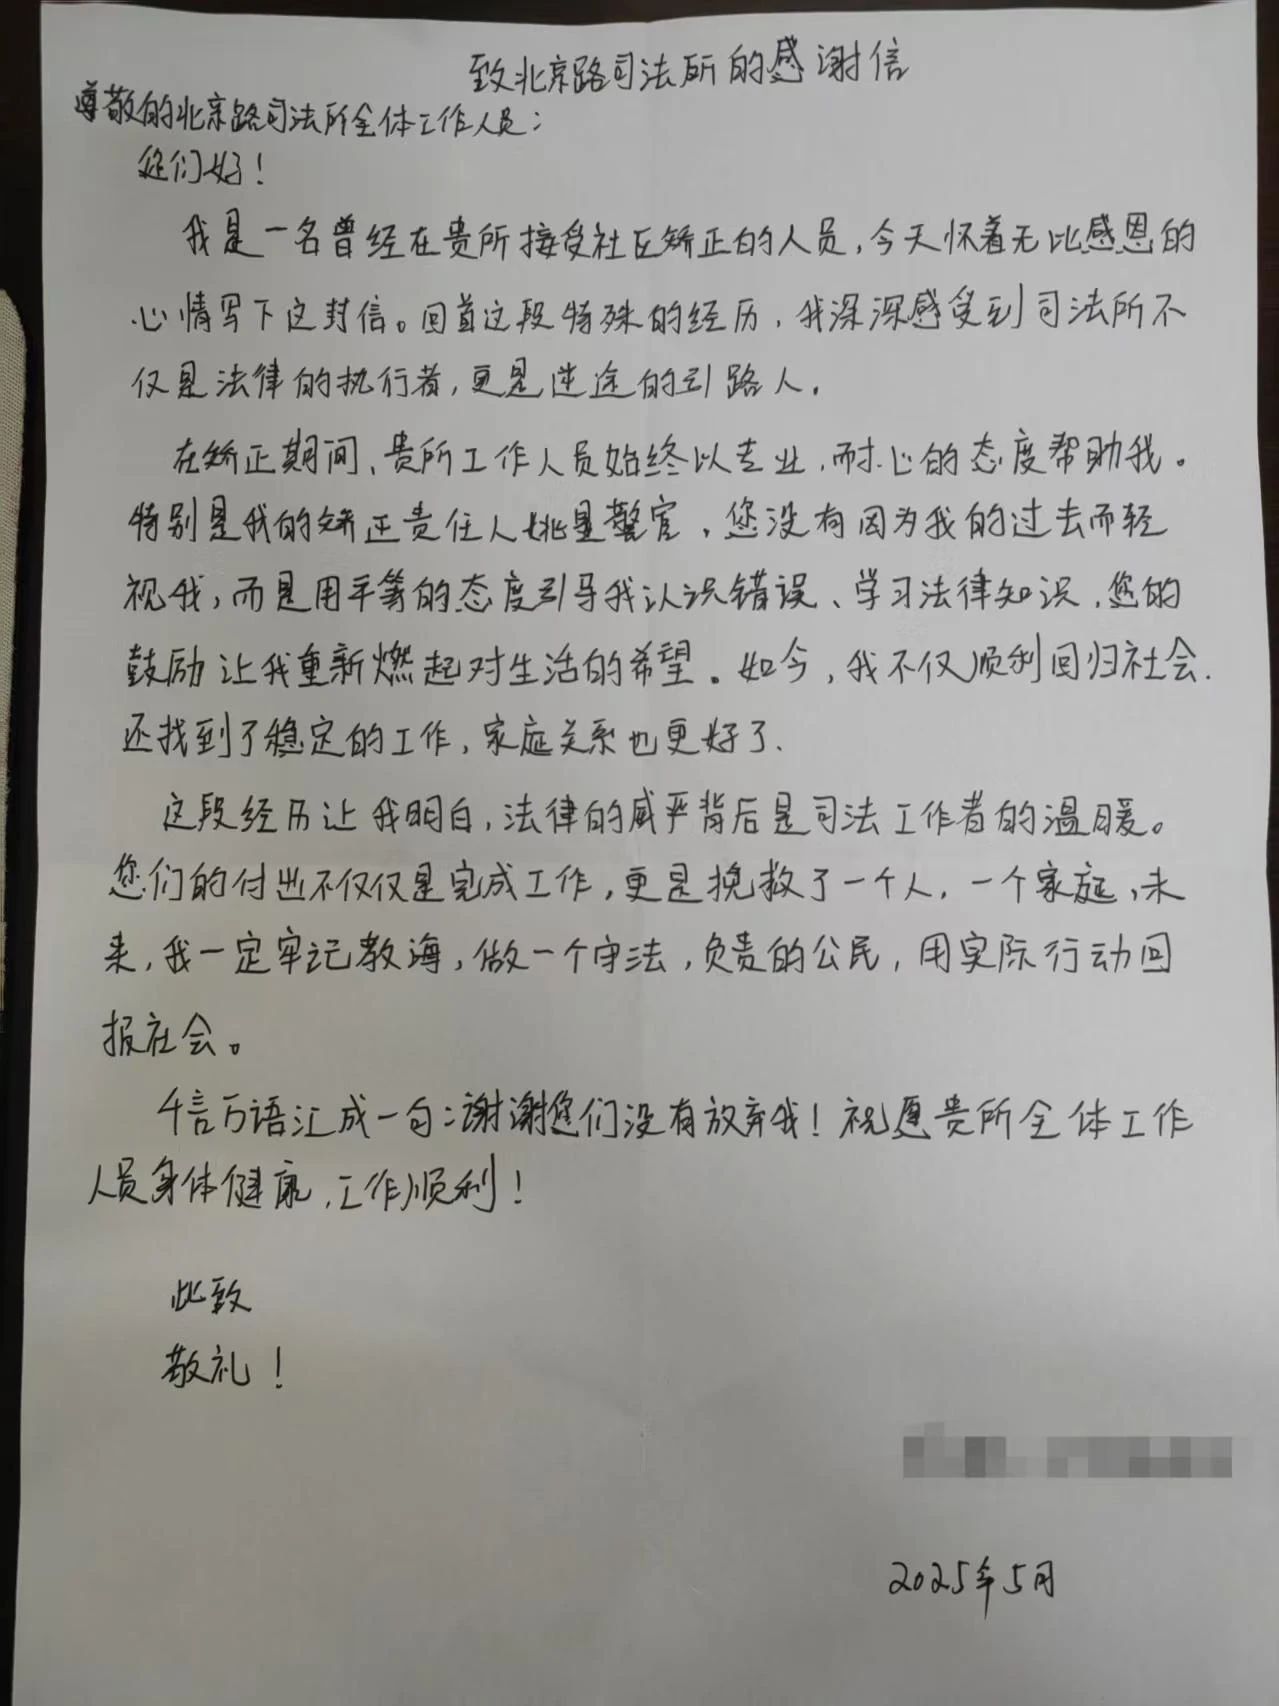 致北京路司法所的感谢信
尊敬的北京路司法所全体工作人员:
您们好!
我是一名曾经在贵所接受社区矫正的人员,今天怀着无比感恩的
心情写下这封信。回首这段特殊的经历,我深深感受到司法所不
仅是法律的执行者,更是迷途的引路人.
在矫正期间、贵所工作人员始终以专业,耐心的态度帮助我。
特别是我的矫正责任人姚星警官,您没有因为我的过去而轻
视我,而是用平等的态度引导我认识错误、学习法律知识,您的
鼓励让我重新燃起对生活的希望。如今,我不仅顺利回归社会.
还找到了稳定的工作,家庭关系也更好了.
这段经历让我明白,法律的威严背后是司法工作者的温暖。
您们的付出不仅仅是完成工作,更是挽救了一个人,一个家庭,未
来,我一定牢记教海,做一个守法,负责的公民,用实际行动回
报社会。
千言万语汇成一句:谢谢您们没有放弃我!祝愿贵所全体工作
人员身体健康,工作顺利!
此致
敬礼!
2025年5月